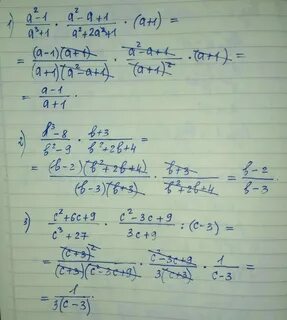 1) (a²-1)/(a³+1) · (a²-a+1)/(a²+2a²+1) · (a+1) =
= ((a-1)(a+1))/((a+1)(a²-a+1)) · (a²-a+1)/(a+1)² · (a+1) =
= (a-1)/(a+1) .
2) (b³-8)/(b²-9) · (b+3)/(b²+2b+4) =
= ((b-2)(b²+2b+4))/((b-3)(b+3)) · (b+3)/(b²+2b+4) = (b-2)/(b-3)
3) (c²+6c+9)/(c³+27) · (c²-3c+9)/(3c+9) : (c-3) =
= (c+3)²/((c+3)(c²-3c+9)) · (c²-3c+9)/(3(c+3)) · 1/(c-3) =
= 1/(3(c-3)) .